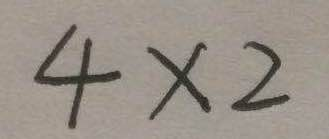 4 × 2